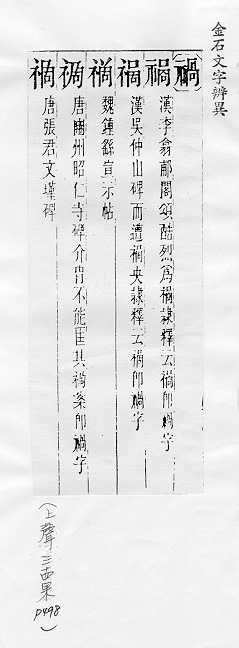 金石文字辨異
【禍】
禍 漢李翕郙閣頌酷烈爲禍隸釋云禍即禍字
禍 漢吳仲山碑而遭禍央隸釋云禍即禍字
禍 魏鍾繇宣示帖
禍 唐豳州昭仁寺碑介胄不能匡其禍案即禍字
禍 唐張君文瑾碑
(上聲二十哿果 p498)